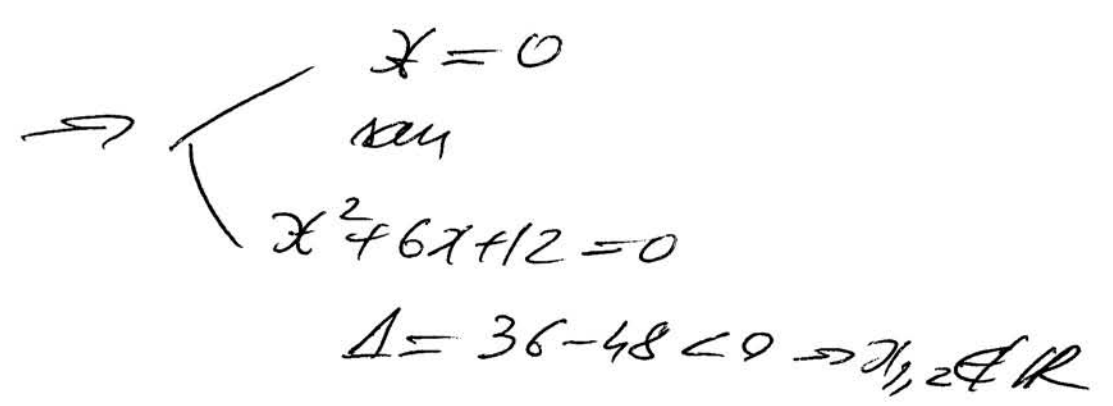 ⇒ x = 0
sau
x² + 6x + 12 = 0
Δ = 36 - 48 < 0 ⇒ x₁,₂ ∉ ℝ